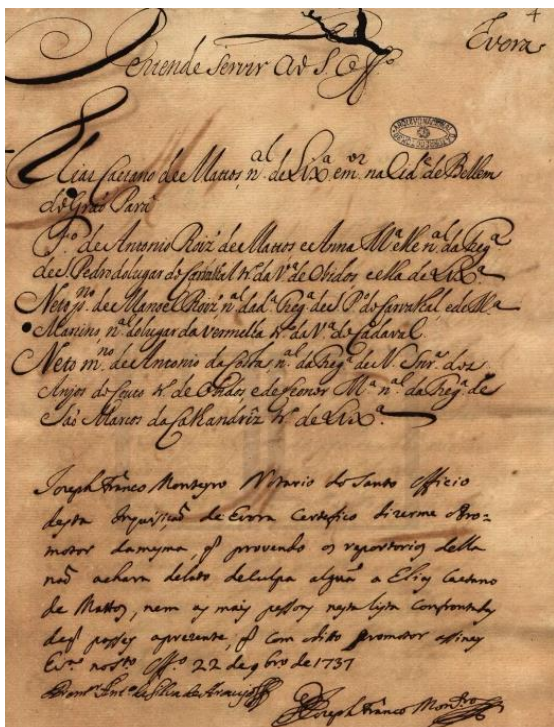 4
Evora
Pertende Servir Ao S. Offº
Elias Caetano de Mattos, n.al de Lixª em.or na Cidᵉ de Bellem
do Graõ Pará
Fº de Antonio Roiz de Mattos e Anna Mª elle n.al da Fregª
de S. Pedro do lugar do Carvalhal tº da Vª de Obidos, e ella de Lixª
Neto pno de Manoel Roiz n.al da dª Fregª de S. Pº do Carvalhal, e de Mª
Martins nª do lugar da Vermelha tº da Vª do Cadaval.
Neto mno de Antonio da Costa, n.al da Fregª de N. Snrª dos
Anjos do Couto tº de Obidos e de Leonor Mª nª da Fregª de
Saõ Marcos da Calhandriz tº de Lixª.
Joseph Franco Monteyro Notario do Santo Officio
desta Inquisiçaõ de Evora Certefico dizerme o Pro-
motor da mesma, q provendo os reportorios della
naõ achara delato de culpa alguã a Elias Caetano
de Mattos, nem as mais pessoas nesta lista confrontadas
de q passey a prezente, q com o ditto promotor assiney
Evª no Sto Offº 22 de 9bro de 1737
Joseph Franco Montrº